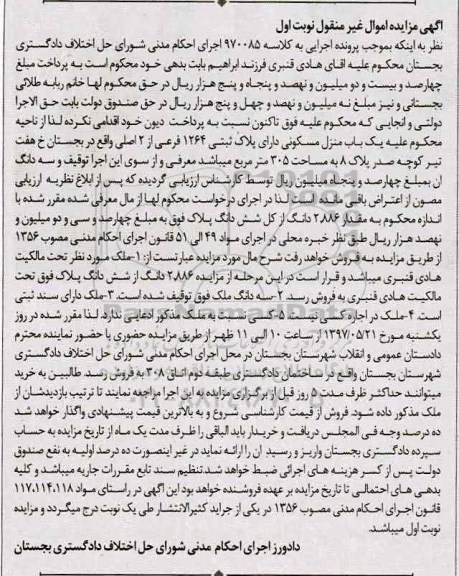 آگهی مزایده اموال غیر منقول نوبت اول
نظر به اینکه بموجب پرونده اجرایی به کلاسه ۹۷۰۰۸۵ اجرای احکام مدنی شورای حل اختلاف دادگستری
بجستان محکوم علیه اقای هادی قنبری فرزند ابراهیم بابت بدهی خود محکوم است به پرداخت مبلغ
چهارصد و بیست و دو میلیون و نهصد و پنجاه و پنج هزار ریال در حق محکوم لها خانم ربابه طلائی
بجستانی و نیز مبلغ نه میلیون و نهصد و چهل و پنج هزار ریال در حق صندوق دولت بابت حق الاجرا
دولتی و انجایی که محکوم علیه فوق تاکنون نسبت به پرداخت دیون خود اقدامی نکرده لذا از ناحیه
محکوم علیه یک باب منزل مسکونی دارای پلاک ثبتی ۱۲۶۴ فرعی از ۲ اصلی واقع در بجستان خ هفت
تیر کوچه صدر پلاک ۸ به مساحت ۳۰۵ متر مربع میباشد معرفی و از سوی این اجرا توقیف و سه دانگ
ان بمبلغ چهارصد و پنجاه میلیون ریال توسط کارشناس ارزیابی گردیده که پس از ابلاغ نظریه ارزیابی
مصون از اعتراض باقی مانده است لذا در اجرای درخواست محکوم لها از مال معرفی شده مقرر شده با
اندازه محکوم به مقدار ۲.۸۸۶ دانگ از کل شش دانگ پلاک فوق به مبلغ چهارصد و سی و دو میلیون و
نهصد هزار ریال طبق نظر خبره محلی در اجرای مواد ۴۹ الی ۵۱ قانون اجرای احکام مدنی مصوب ۱۳۵۶
از طریق مزایده به فروش خواهد رفت شرح مال مورد مزایده عبارتست از: ۱-ملک مورد نظر تحت مالکیت
هادی قنبری میباشد و قرار است در این مرحله از مزایده ۲.۸۸۶ دانگ از شش دانگ پلاک فوق تحت
مالکیت هادی قنبری به فروش رسد ۲-سه دانگ ملک فوق توقیف شده است. ۳-ملک دارای سند ثبتی
است. ۴-ملک در اجاره کسی نیست. ۵-کسی نسبت به ملک مذکور ادعایی ندارد. لذا مقرر شده در روز
یکشنبه مورخ ۱۳۹۷/۰۵/۲۱ از ساعت ۱۰ الی ۱۱ ظهر از طریق مزایده حضوری با حضور نماینده محترم
دادستان عمومی و انقلاب شهرستان بجستان در محل اجرای احکام مدنی شورای حل اختلاف دادگستری
شهرستان بجستان واقع در ساختمان دادگستری طبقه دوم اتاق ۳۰۸ به فروش رسد. طالبین به خرید
میتوانند حداکثر ظرف مدت ۵ روز قبل از برگزاری مزایده به این اجرا مراجعه نمایند تا ترتیب بازدیدشان از
ملک مذکور داده شود. فروش از قیمت کارشناسی شروع و به بالاترین قیمت پیشنهادی واگذار خواهد شد
ده درصد وجه فی المجلس دریافت و خریدار باید الباقی را ظرف مدت یک ماه از تاریخ مزایده به حساب
سپرده دادگستری بجستان واریز و رسید ان را ارائه نماید در غیر اینصورت ده درصد اولیه به نفع صندوق
دولت پس از کسر هزینه های اجرائی ضبط خواهد شد تنظیم سند تابع مقررات جاریه میباشد و کلیه
بدهی های احتمالی تا تاریخ مزایده بر عهده فروشنده خواهد بود این اگهی در راستای مواد ۱۱۷،۱۱۴،۱۱۸
قانون اجرای احکام مدنی مصوب ۱۳۵۶ در یکی از جراید کثیرالانتشار طی یک نوبت درج میگردد و مزایده
نوبت اول میباشد.
دادورز اجرای احکام مدنی شورای حل اختلاف دادگستری بجستان